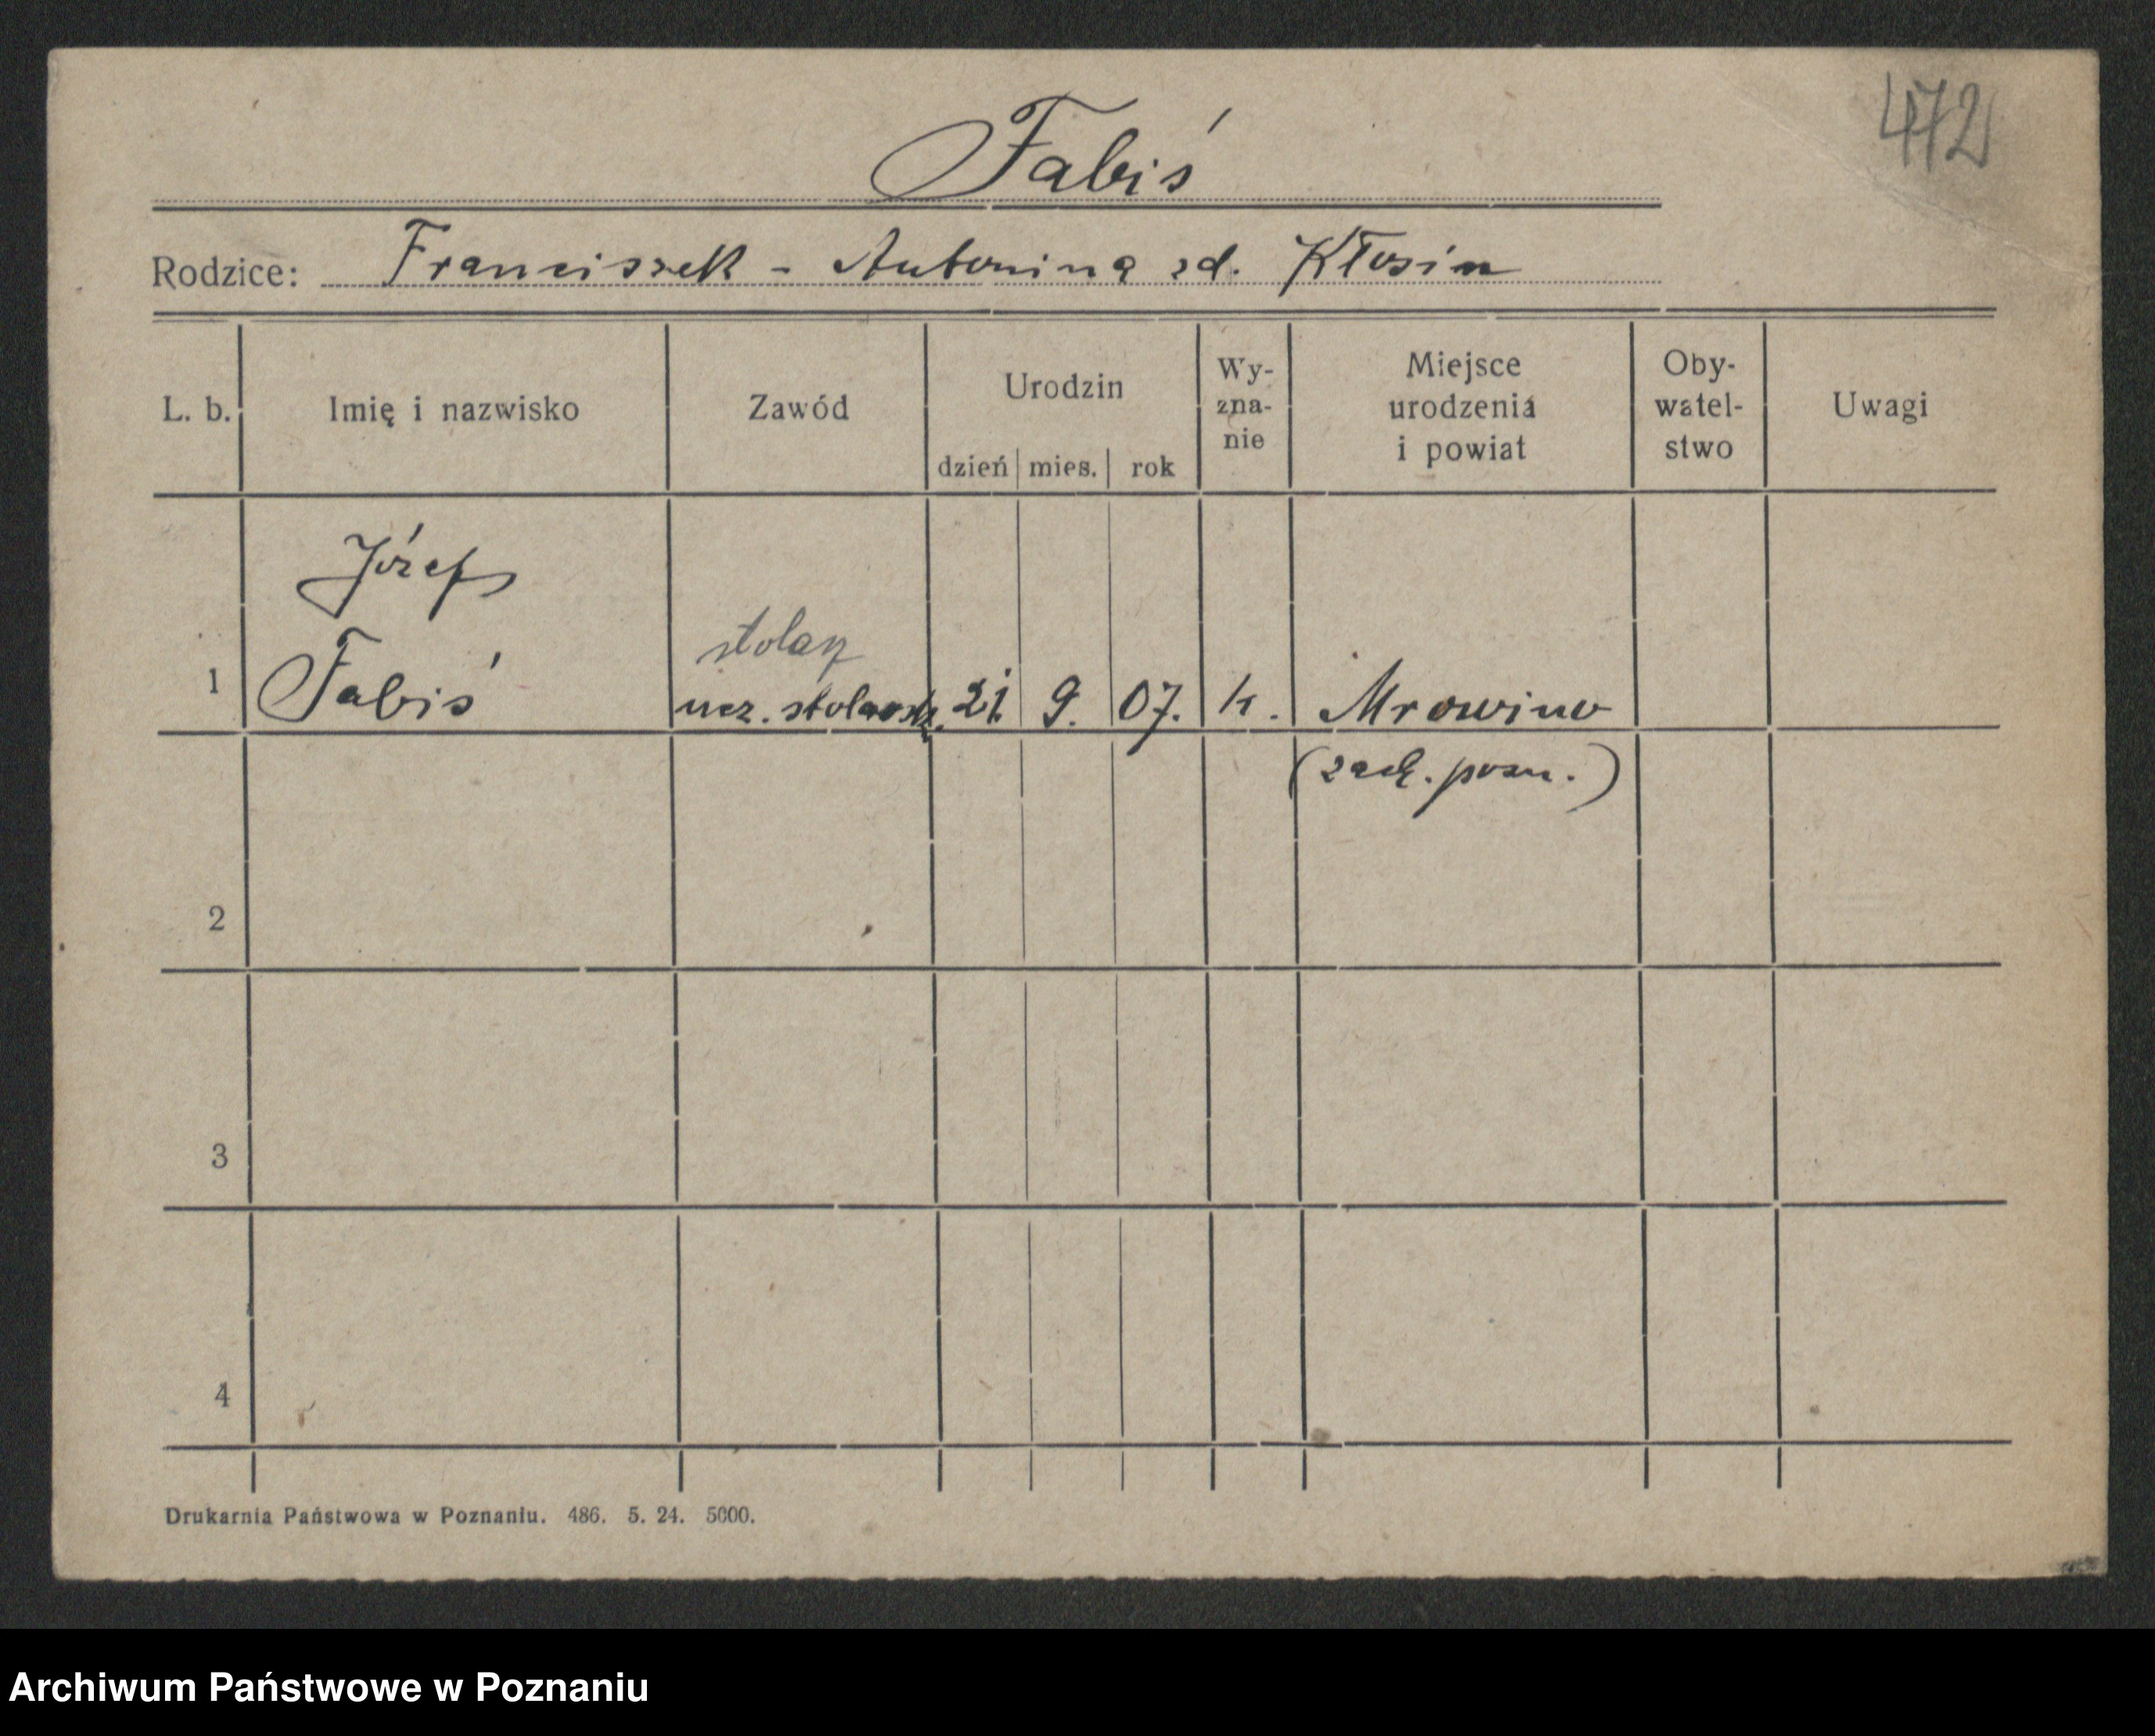 472
Fabiś
Rodzice: Franciszek - Antonina zd. Kłosin
L. b.
Imię i nazwisko
Zawód
Urodzin
dzień
mies.
rok
Wy-
zna-
nie
Miejsce
urodzenia
i powiat
Oby-
watel-
stwo
Uwagi
Józef
stolarz
1 Fabiś ucz. stolarsk. 21 9. 07. k. Mrowino
(zach. pozn.)
2
3
4
Drukarnia Państwowa w Poznaniu. 486. 5. 24. 5000.
Archiwum Państwowe w Poznaniu